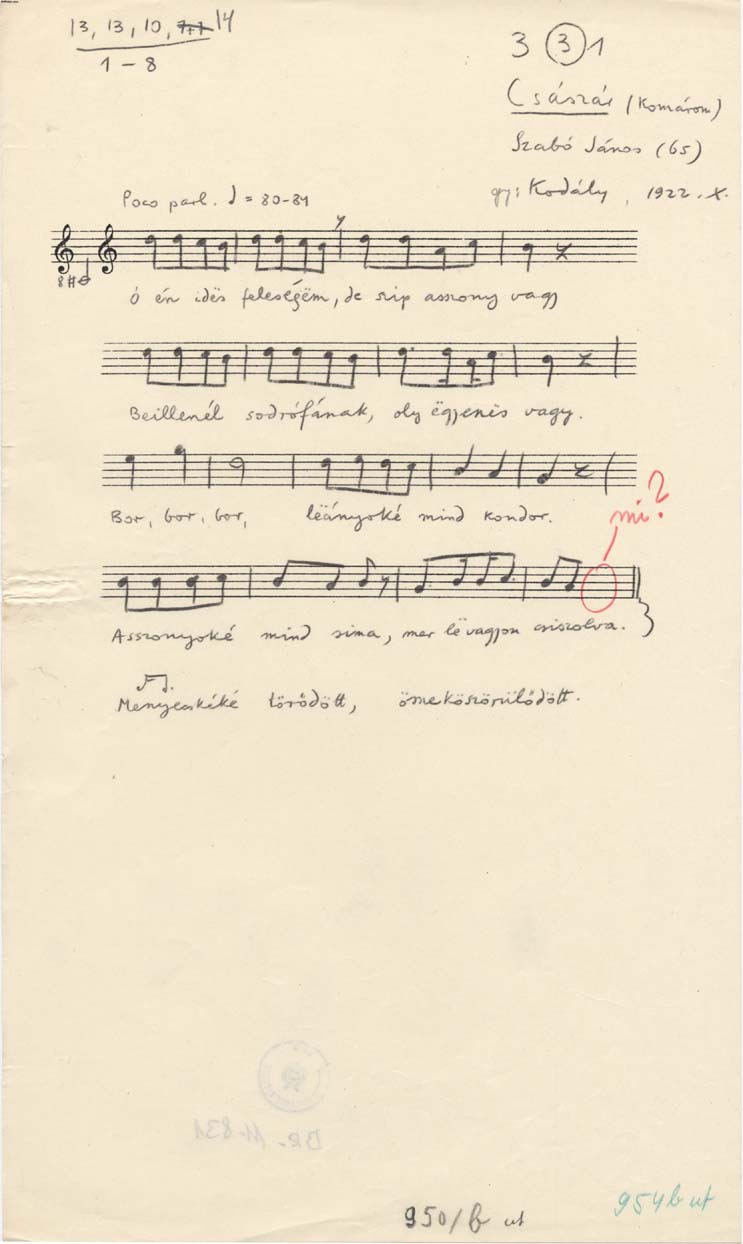 13, 13, 10, 14
1 – 8
3 3 1
Császár (Komárom)
Szabó János (65)
gy: Kodály, 1922. X.
Poco parl. = 80-84
Ó én idës feleségëm, de szíp asszony vagy
Beillenél sodrófának, oly ëgyenës vagy.
Bor, bor, bor, lëányoké mind kondor.
mi?
Asszonyoké mind sima, mer lë vagyon csiszolva.
Menyecskéké törődött, össeköszörülődött.
BR. 11.831
950/b ut
954b ut